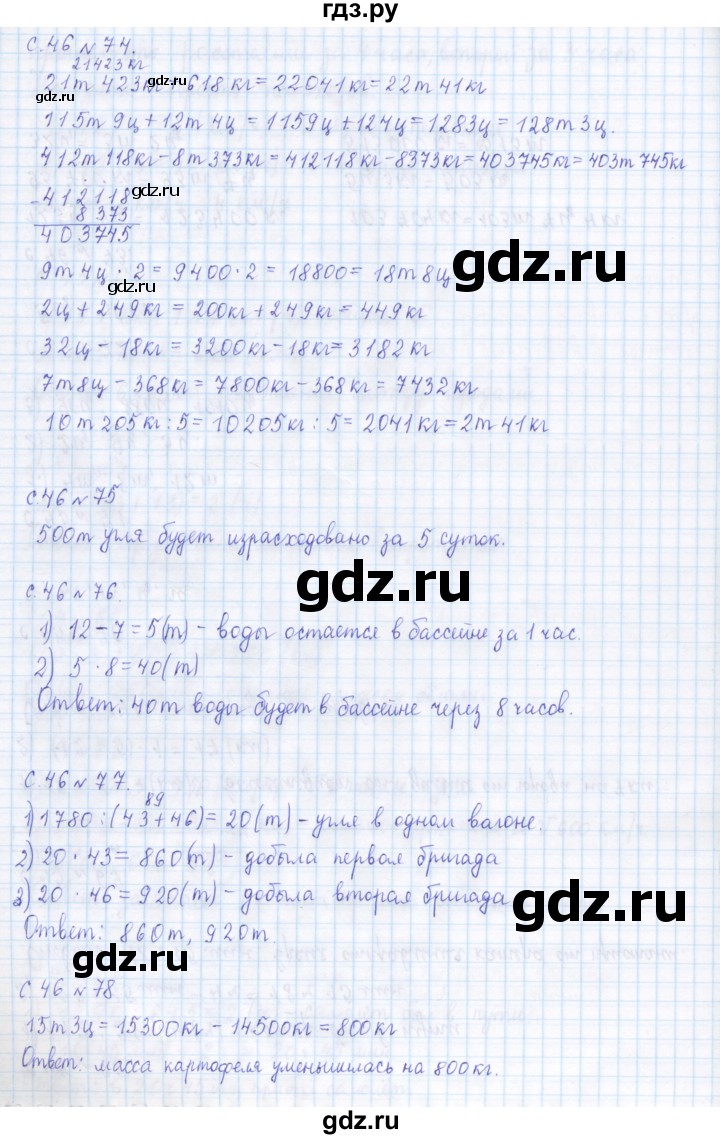 гдз.ру
с.46 №74.
21423кг
21т 423кг + 618кг = 22041кг = 22т 41кг
gdz.ru
gdz.ru
115т 9ц + 12т 4ц = 1159ц + 124ц = 1283ц = 128т 3ц.
412т 118кг - 8т 373кг = 412118кг - 8373кг = 403745кг = 403т 745кг
gdz.ru
gdz.ru
- 412118
8373
403745
gdz.ru
9т 4ц · 2 = 9400 · 2 = 18800 = 18т 8ц
gdz.ru
2ц + 249кг = 200кг + 249кг = 449кг
32ц - 18кг = 3200кг - 18кг = 3182кг
7т 8ц - 368кг = 7800кг - 368кг = 7432кг
10т 205кг : 5 = 10205кг : 5 = 2041кг = 2т 41кг
с.46 №75
500т угля будет израсходовано за 5 суток.
gdz.ru
с.46 №76.
1) 12 - 7 = 5(т) - воды остается в бассейне за 1 час.
2) 5 · 8 = 40(т)
Ответ: 40т воды будет в бассейне через 8 часов.
с.46 №77.
89
1) 1780 : (43 + 46) = 20(т) - угля в одном вагоне.
2) 20 · 43 = 860(т) - добыла первая бригада
3) 20 · 46 = 920(т) - добыла вторая бригада
gdz.ru
Ответ: 860т, 920т.
с.46 №78
15т 3ц = 15300кг - 14500кг = 800кг
Ответ: масса картофеля уменьшилась на 800кг.
gdz.ru